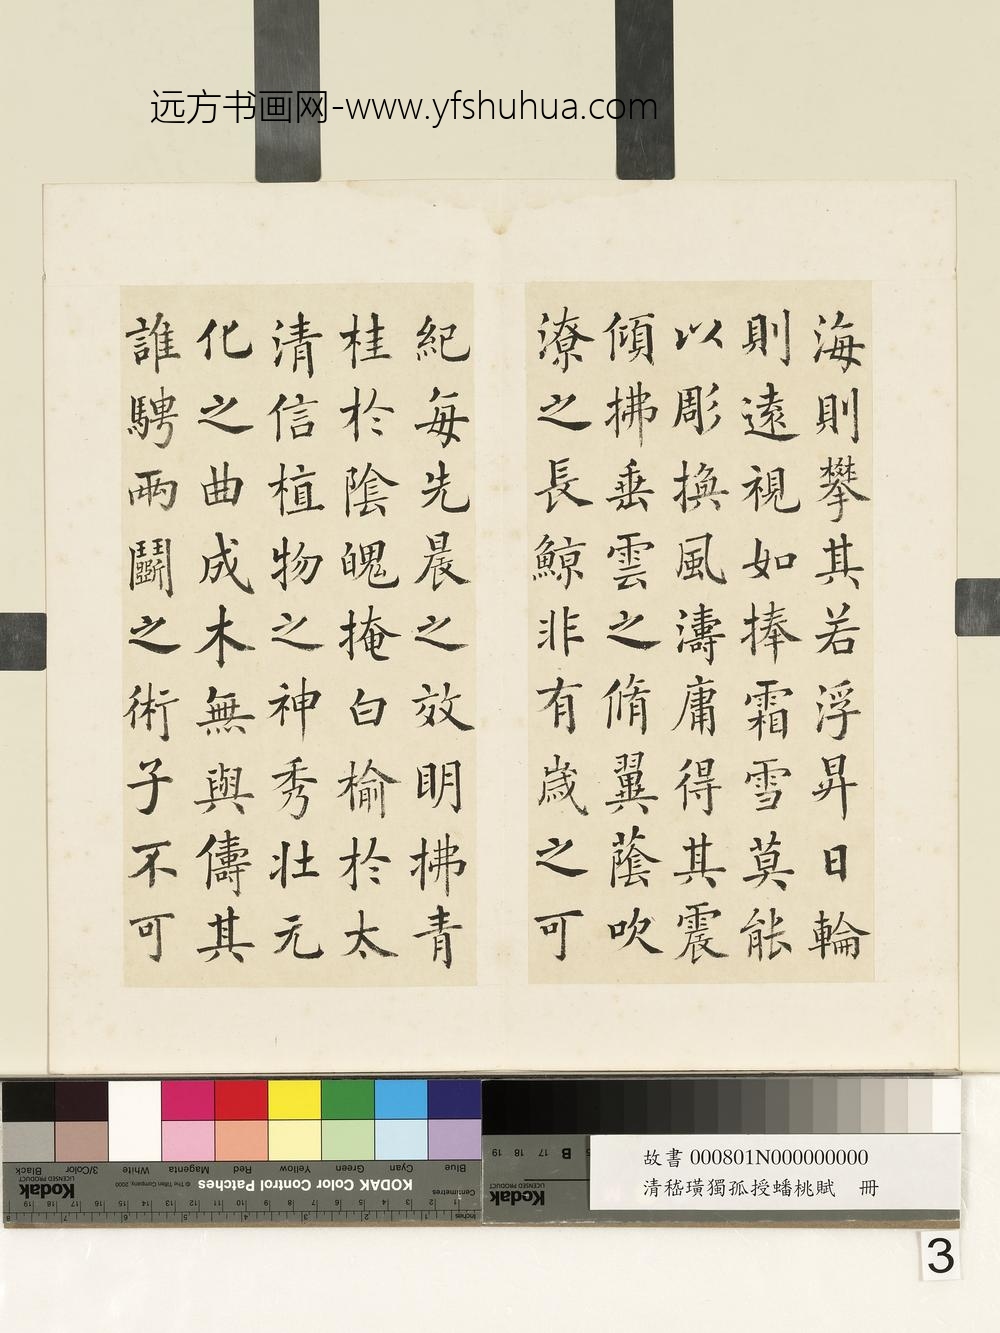 远方书画网-www.yfshuhua.com
海則攀其若浮昇日輪
則遠視如捧霜雪莫能
以彫換風濤庸得其震
傾拂垂雲之脩翼蔭吹
潦之長鯨非有歲之可
紀每先晨之效明拂青
桂於陰魄掩白榆於太
清信植物之神秀壯元
化之曲成木無與儔其
誰騁兩鬭之術子不可
Blue Cyan Green Yellow Red Magenta White 3/Color Black
KODAK Color Control Patches
© The Tiffen Company, 2000
Kodak
LICENSED PRODUCT
Centimetres
Inches
Kodak
LICENSED PRODUCT
B
17 18 19
故書 000801N000000000
清嵇璜獨孤授蟠桃賦 冊
3